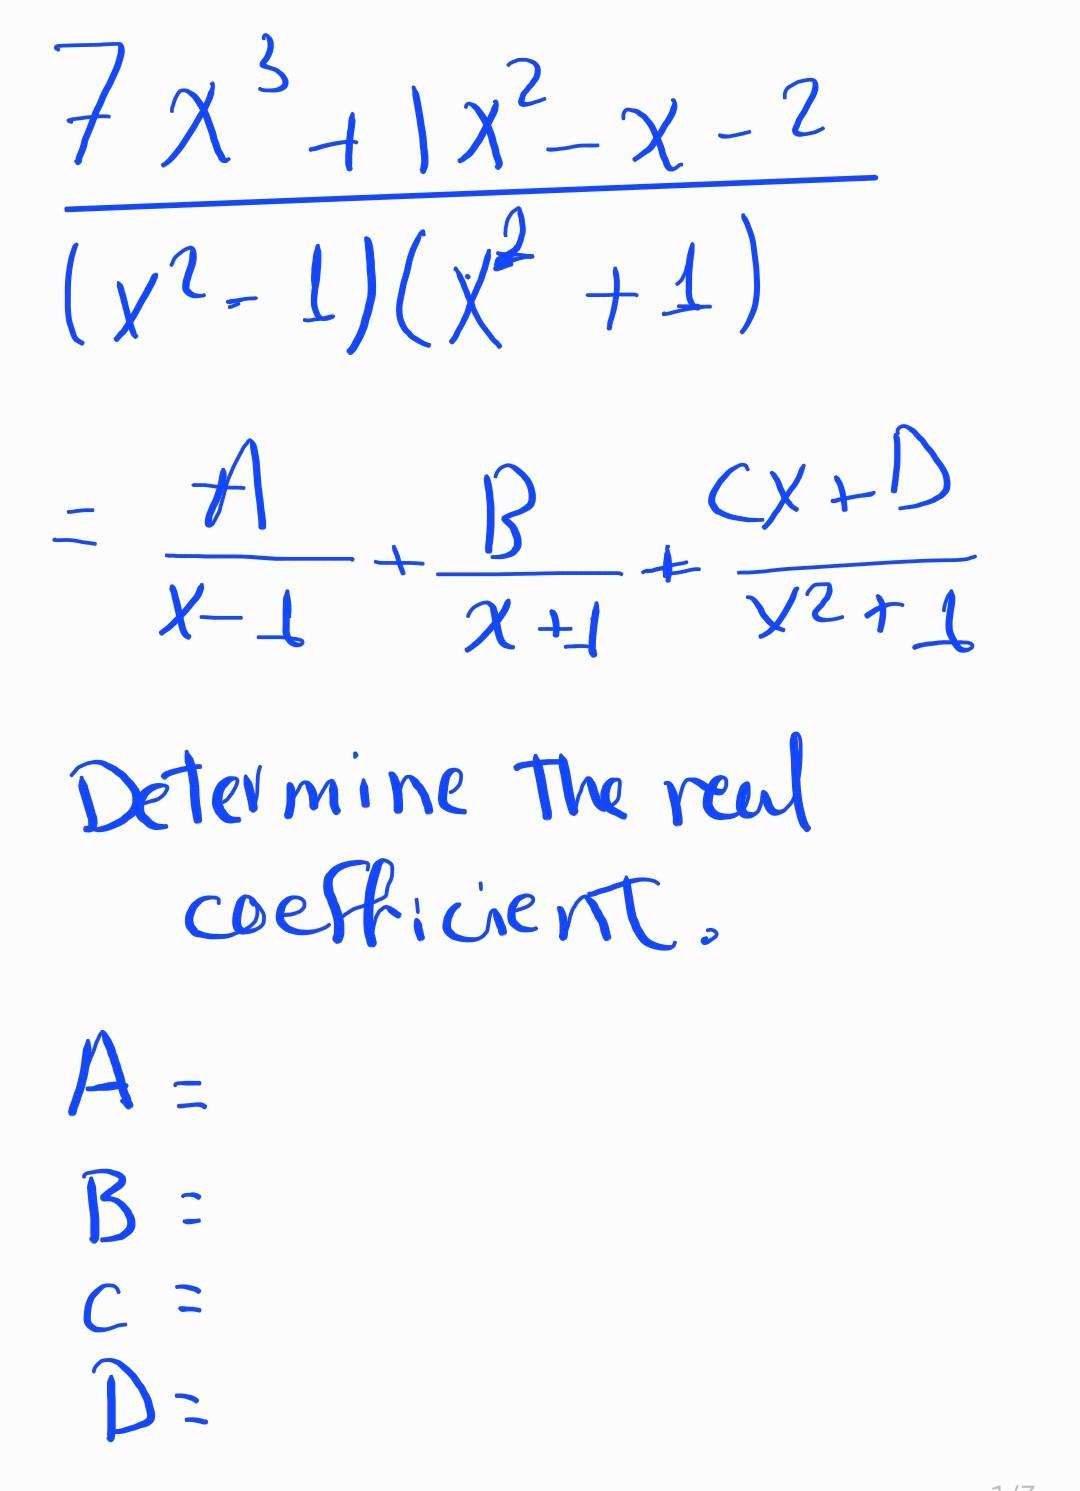 7x³ + 1x² - x - 2
(x² - 1)(x² + 1)
= A/(x - 1) + B/(x + 1) + (Cx + D)/(x² + 1)
Determine the real
coefficient.
A =
B =
C =
D =